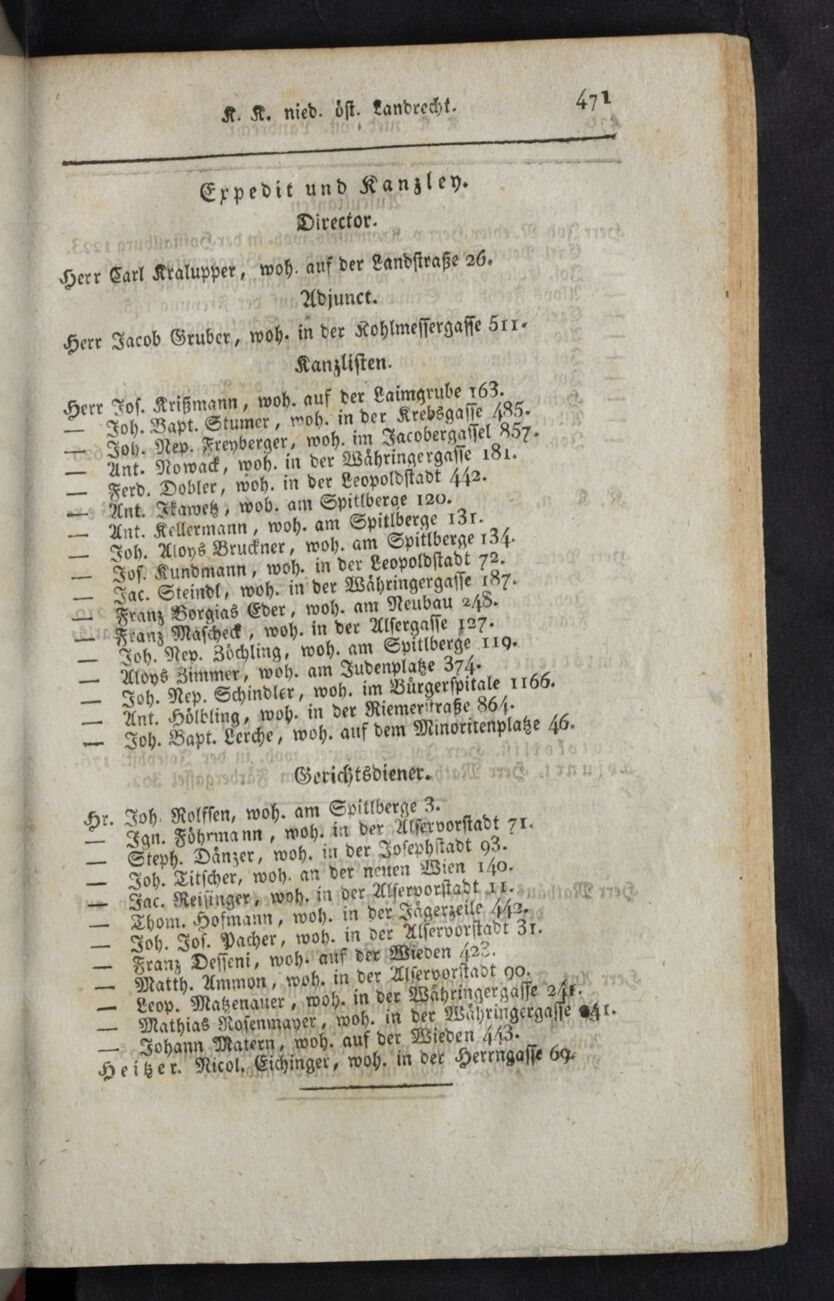 K. K. nied. öst. Landrecht. 471
Expedit und Kanzley.
Director.
Herr Carl Kralupper, woh. auf der Landstraße 26.
Adjunct.
Herr Jacob Gruber, woh. in der Kohlmessergasse 511.
Kanzlisten.
Herr Jos. Krißmann, woh. auf der Laimgrube 163.
— Joh. Bapt. Stumer, woh. in der Krebsgasse 485.
— Joh. Nep. Freyberger, woh. im Jacobergassel 857.
— Ant. Nowack, woh. in der Währingergasse 181.
— Ferd. Dobler, woh. in der Leopoldstadt 442.
— Ant. Ikawetz, woh. am Spitlberge 120.
— Ant. Kellermann, woh. am Spitlberge 131.
— Joh. Aloys Bruckner, woh. am Spitlberge 134.
— Jos. Kundmann, woh. in der Leopoldstadt 72.
— Jac. Steindl, woh. in der Währingergasse 187.
— Franz Borgias Eder, woh. am Neubau 248.
— Franz Mascheck, woh. in der Alsergasse 127.
— Joh. Nep. Zöchling, woh. am Spitlberge 119.
— Aloys Zimmer, woh. am Judenplatze 374.
— Joh. Nep. Schindler, woh. im Bürgerspitale 1166.
— Ant. Hölbling, woh. in der Riemerstraße 864.
— Joh. Bapt. Lerche, woh. auf dem Minoritenplatze 46.
Gerichtsdiener.
Hr. Joh. Rolffen, woh. am Spitlberge 3.
— Ign. Föhrmann, woh. in der Alservorstadt 71.
— Steph. Dänzer, woh. in der Josephstadt 93.
— Joh. Titscher, woh. an der neuen Wien 140.
— Jac. Reisinger, woh. in der Alservorstadt 11.
— Thom. Hofmann, woh. in der Jägerzeile 442.
— Joh. Jos. Pacher, woh. in der Alservorstadt 31.
— Franz Desseni, woh. auf der Wieden 423.
— Matth. Ammon, woh. in der Alservorstadt 90.
— Leop. Matzenauer, woh. in der Währingergasse 241.
— Mathias Rosenmayer, woh. in der Währingergasse 241.
— Johann Matern, woh. auf der Wieden 443.
Heitzer. Nicol. Eichinger, woh. in der Herrngasse 69.